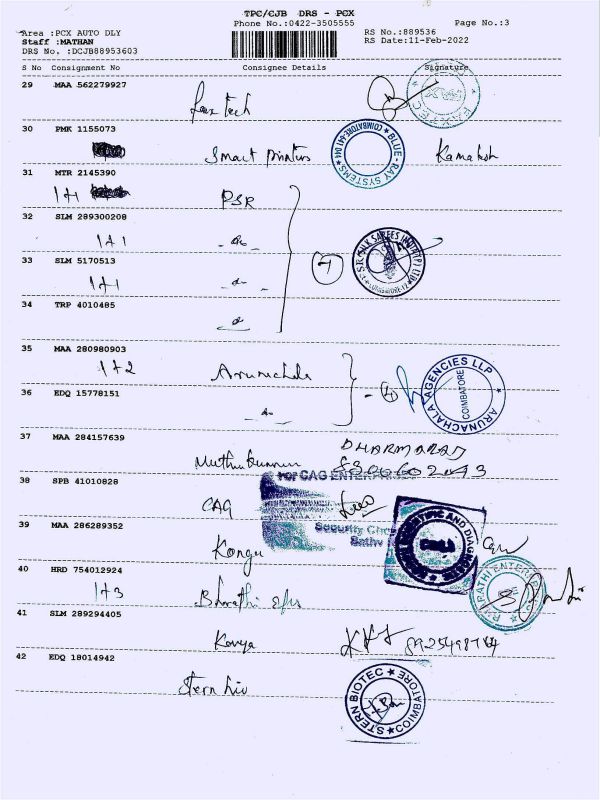 TPC/CJB DRS - PCX
Phone No.:0422-3505555
Page No.:3
Area :PCX AUTO DLY
Staff :MATHAN
DRS No. :DCJB88953603
RS No.:889536
RS Date:11-Feb-2022
S No Consignment No Consignee Details Signature
29 MAA 562279927
30 PMK 1155073
Smart Printers
BLUE-RAY SYSTEMS
COIMBATORE-641 044
31 MTR 2145390
1+1 PSR
32 SLM 289300208
1+1 -do-
33 SLM 5170513
1+1 -do-
34 TRP 4010485
do
35 MAA 280980903
1+2 Arunachala
ARUNACHALA AGENCIES LLP
COIMBATORE
36 EDQ 15778151
-do-
37 MAA 284157639
38 SPB 41010828
CAG
For CAG ENTERPRISES
39 MAA 286289352
Kongu
40 HRD 754012924
1+3 Bharathi
BHARATHI ENTERPRISES
41 SLM 289294405
Kavya
42 EDQ 18014942
STERN BIOTEC
COIMBATORE